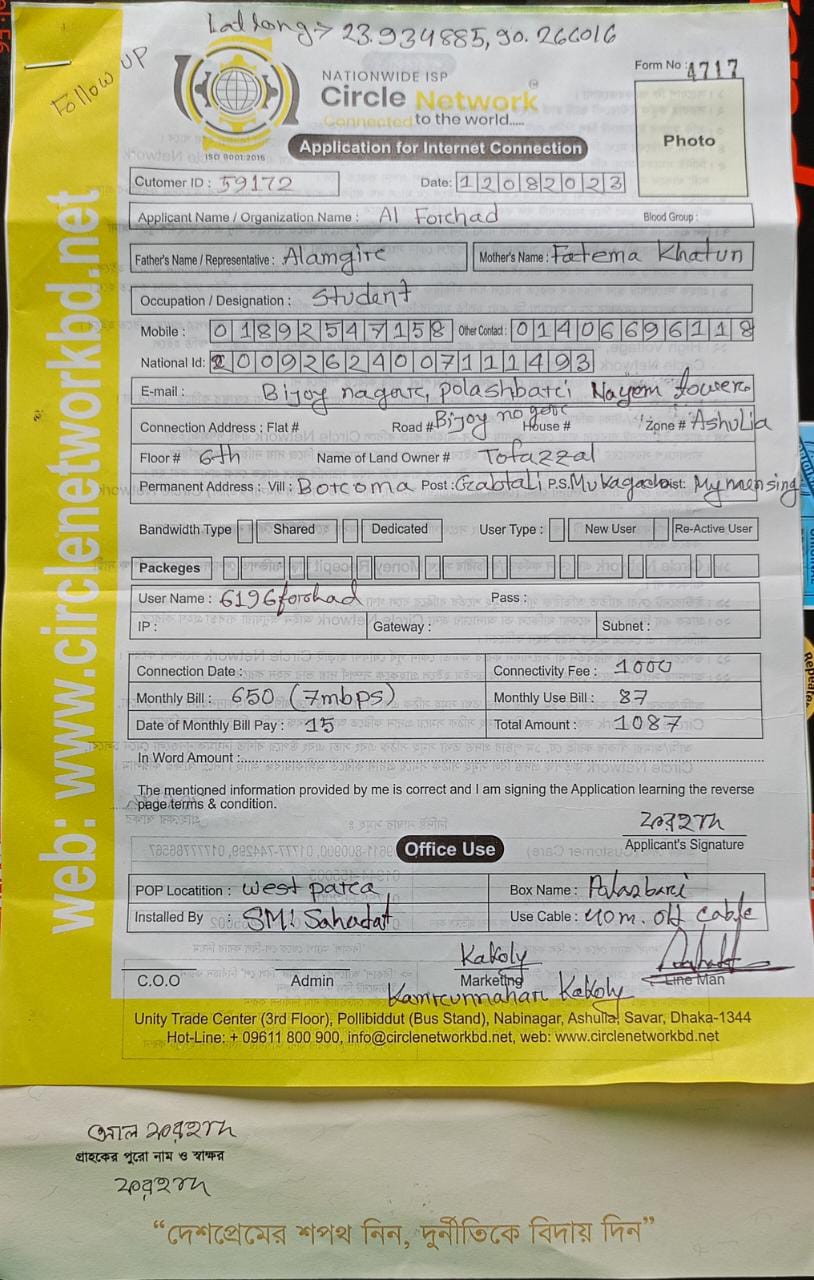 Lat long → 23.934885, 90.266016
Follow UP
NATIONWIDE ISP
Circle Network
Connected to the world.....
ISO 9001:2015
Form No : 4717
Photo
Application for Internet Connection
Cutomer ID : 59172 Date: 12082023
Applicant Name / Organization Name : Al Forhad Blood Group :
Father's Name / Representative : Alamgire Mother's Name : Fatema Khatun
Occupation / Designation : Student
Mobile : 01892547158 Other Contact : 01406696118
National Id: 20092624007111493
E-mail : Bijoy nagar, polashbari Nayem tower
Connection Address : Flat # Road # Bijoy nagar House # Zone # Ashulia
Floor # 6th Name of Land Owner # Tofazzal
Permanent Address : Vill : Borcoma Post : Gabtali P.S. Dist: Mymensing
Bandwidth Type Shared Dedicated User Type : New User Re-Active User
Packeges
User Name : 6196forhad Pass :
IP : Gateway : Subnet :
Connection Date : Connectivity Fee : 1000
Monthly Bill : 650 (7mbps) Monthly Use Bill : 87
Date of Monthly Bill Pay : 15 Total Amount : 1087
In Word Amount :
The mentioned information provided by me is correct and I am signing the Application learning the reverse
page terms & condition.
ফরহাদ
Applicant's Signature
Office Use
POP Locatition : west para Box Name : Palasbari
Installed By : SM! Sahadat Use Cable : 40m. old cable
Kakoly
C.O.O Admin Marketing Line Man
Kamrunnahar Kakoly
Unity Trade Center (3rd Floor), Pollibiddut (Bus Stand), Nabinagar, Ashulia, Savar, Dhaka-1344
Hot-Line: + 09611 800 900, info@circlenetworkbd.net, web: www.circlenetworkbd.net
web: www.circlenetworkbd.net
আল ফরহাদ
গ্রাহকের পুরো নাম ও স্বাক্ষর
ফরহাদ
“দেশপ্রেমের শপথ নিন, দুর্নীতিকে বিদায় দিন”